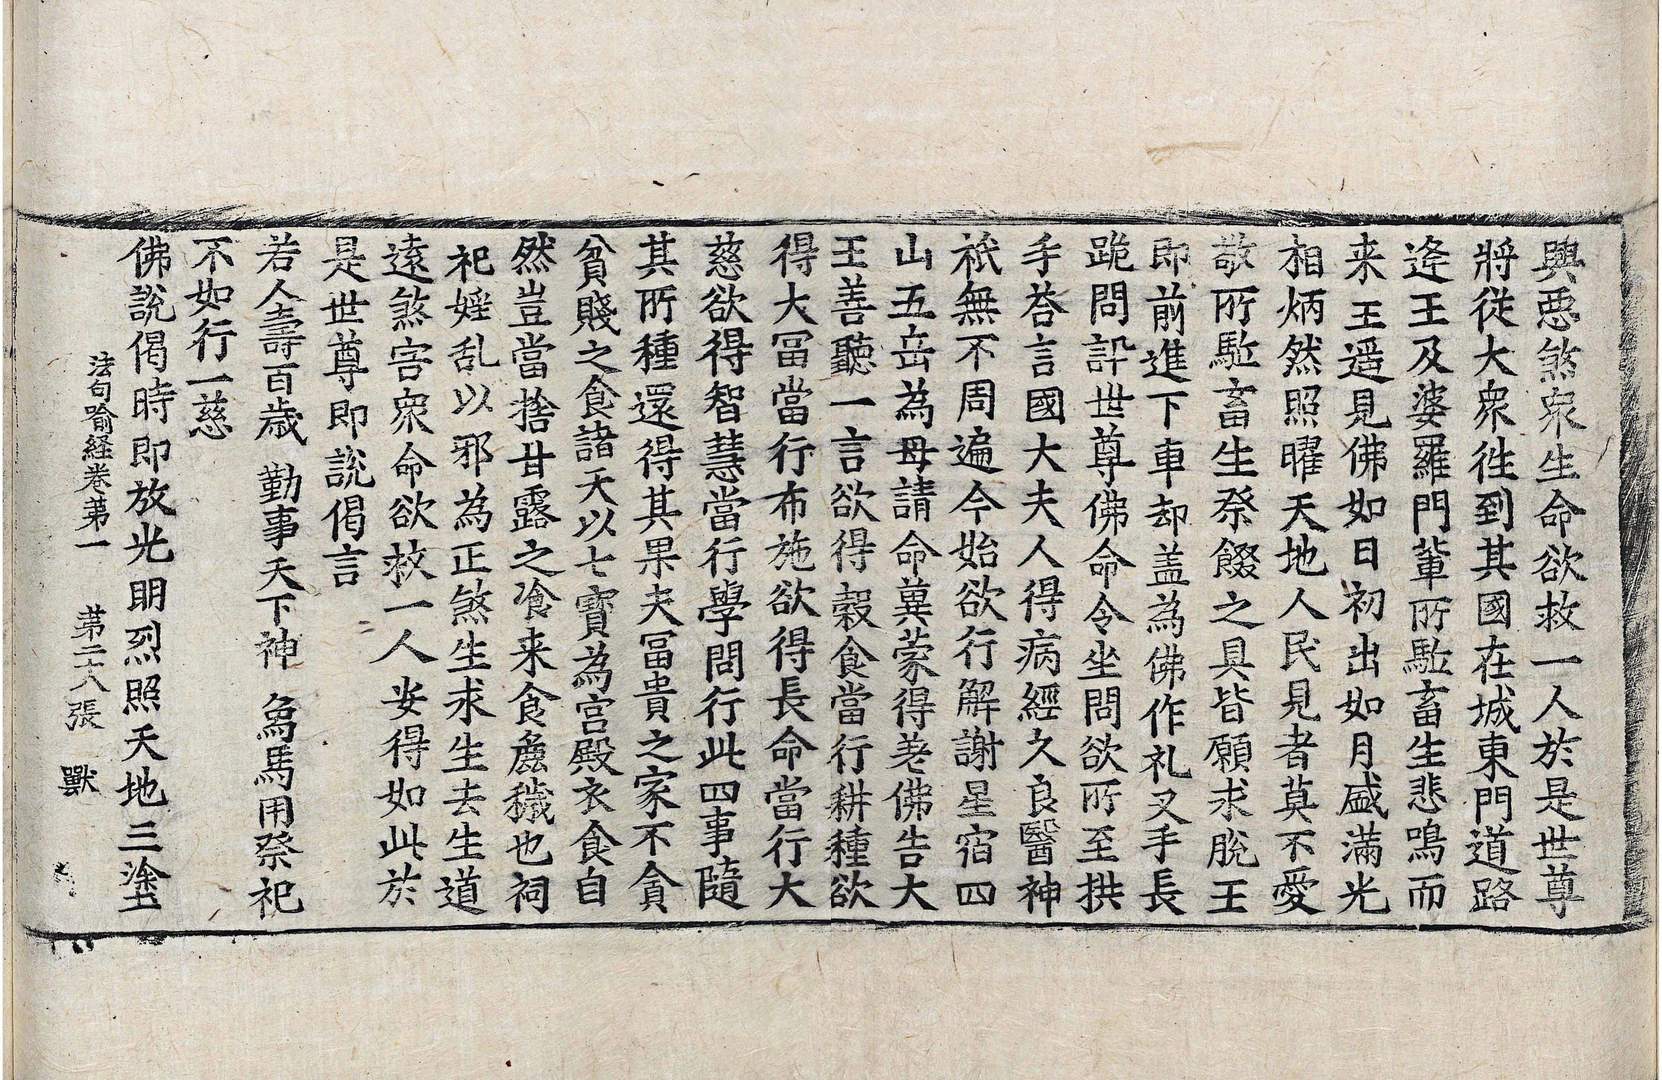 興惡煞衆生命欲救一人於是世尊
將從大衆徃到其國在城東門道路
逢王及婆羅門輩所駈畜生悲鳴而
来王遥見佛如日初出如月盛滿光
相炳然照曜天地人民見者莫不愛
敬所駈畜生祭餟之具皆願求脫王
即前進下車却盖為佛作礼叉手長
跪問訊世尊佛命令坐問欲所至拱
手荅言國大夫人得病經久良醫神
祇無不周遍今始欲行解謝星宿四
山五岳為母請命冀蒙得差佛告大
王善聽一言欲得穀食當行耕種欲
得大冨當行布施欲得長命當行大
慈欲得智慧當行學問行此四事隨
其所種還得其果夫冨貴之家不貪
貧賤之食諸天以七寶為宮殿衣食自
然豈當捨甘露之飡来食麁穢也祠
祀婬乱以邪為正煞生求生去生道
遠煞害衆命欲救一人安得如此於
是世尊即說偈言
若人壽百歲 勤事天下神 象馬用祭祀
不如行一慈
佛說偈時即放光明烈照天地三塗
法句喻経卷第一 第二十八張 獸